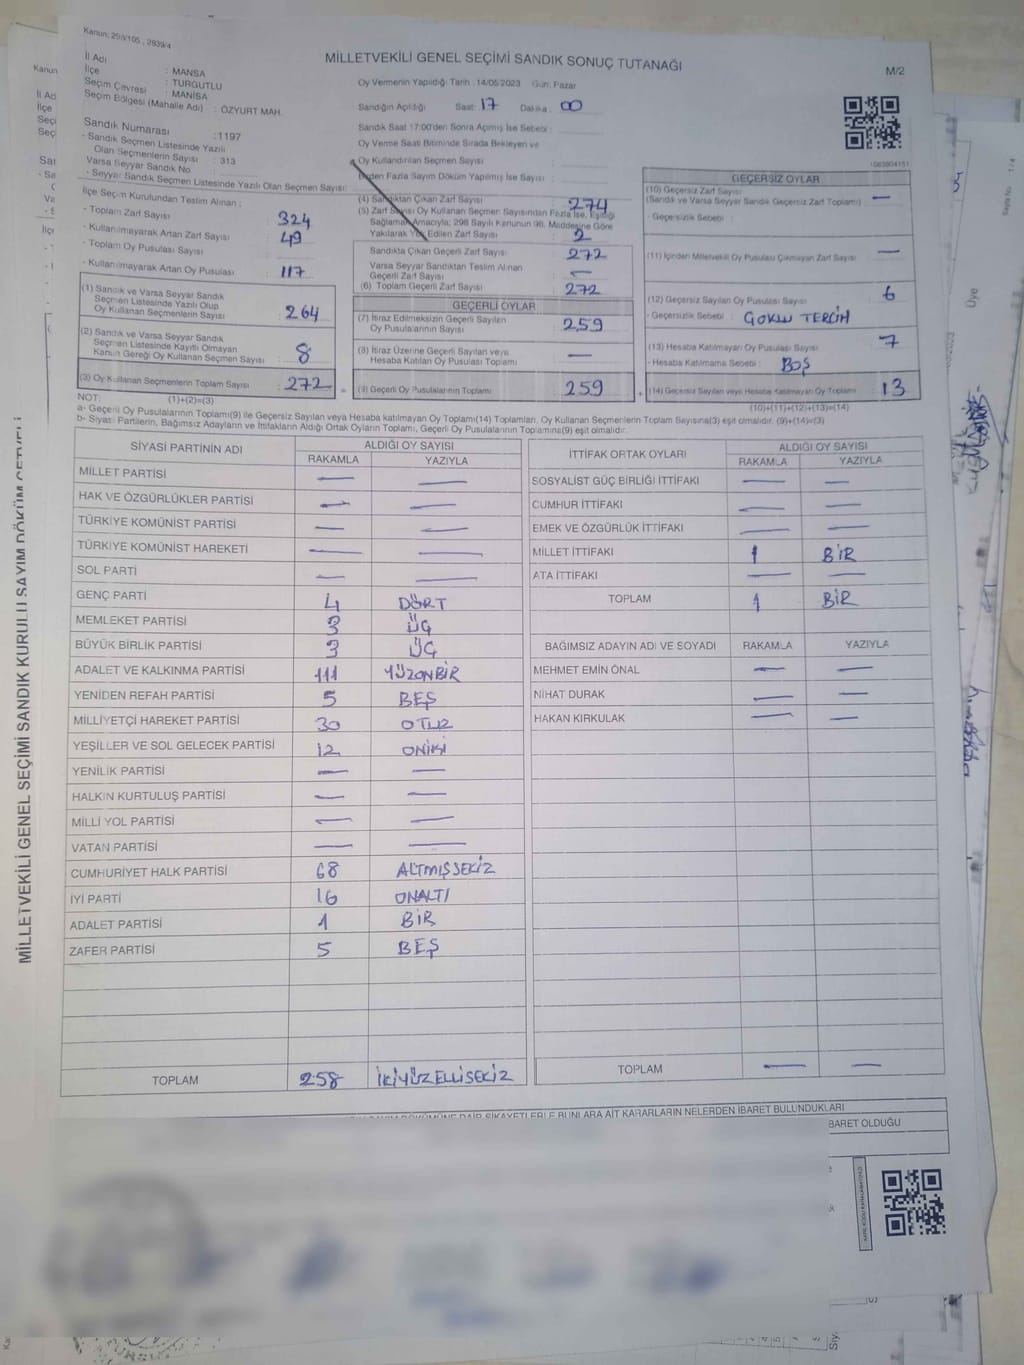 Kanun: 298/105, 2839/4
MİLLETVEKİLİ GENEL SEÇİMİ SANDIK SONUÇ TUTANAĞI
M/2
İl Adı : MANSA
İlçe : TURGUTLU
Seçim Çevresi : MANİSA
Seçim Bölgesi (Mahalle Adı) : ÖZYURT MAH.
Sandık Numarası : 1197
- Sandık Seçmen Listesinde Yazılı
Olan Seçmenlerin Sayısı : 313
Varsa Seyyar Sandık No
- Seyyar Sandık Seçmen Listesinde Yazılı Olan Seçmen Sayısı:
Oy Vermenin Yapıldığı Tarih : 14/05/2023 Gün: Pazar
Sandığın Açıldığı Saat: 17 Dakika: 00
Sandık Saat 17:00'den Sonra Açılmış İse Sebebi :
Oy Verme Saati Bitiminde Sırada Bekleyen ve
Oy Kullandırılan Seçmen Sayısı :
Birden Fazla Sayım Döküm Yapılmış İse Sayısı :
İlçe Seçim Kurulundan Teslim Alınan :
- Toplam Zarf Sayısı : 324
- Kullanılmayarak Artan Zarf Sayısı : 49
- Toplam Oy Pusulası Sayısı :
- Kullanılmayarak Artan Oy Pusulası : 117
(1) Sandık ve Varsa Seyyar Sandık
Seçmen Listesinde Yazılı Olup
Oy Kullanan Seçmenlerin Sayısı : 264
(2) Sandık ve Varsa Seyyar Sandık
Seçmen Listesinde Kayıtlı Olmayan
Kanun Gereği Oy Kullanan Seçmen Sayısı : 8
(3) Oy Kullanan Seçmenlerin Toplam Sayısı : 272
(1)+(2)=(3)
(4) Sandıktan Çıkan Zarf Sayısı : 274
(5) Zarf Sayısı Oy Kullanan Seçmen Sayısından Fazla İse, Eşitliği
Sağlamak Amacıyla; 298 Sayılı Kanunun 98. Maddesine Göre
Yakılarak Yok Edilen Zarf Sayısı : 2
Sandıkta Çıkan Geçerli Zarf Sayısı : 272
Varsa Seyyar Sandıktan Teslim Alınan
Geçerli Zarf Sayısı : —
(6) Toplam Geçerli Zarf Sayısı : 272
GEÇERLİ OYLAR
(7) İtiraz Edilmeksizin Geçerli Sayılan
Oy Pusulalarının Sayısı : 259
(8) İtiraz Üzerine Geçerli Sayılan veya
Hesaba Katılan Oy Pusulası Toplamı : —
(9) Geçerli Oy Pusulalarının Toplamı : 259
GEÇERSİZ OYLAR
(10) Geçersiz Zarf Sayısı
(Sandık ve Varsa Seyyar Sandık Geçersiz Zarf Toplamı) : —
- Geçersizlik Sebebi :
(11) İçinden Milletvekili Oy Pusulası Çıkmayan Zarf Sayısı : —
(12) Geçersiz Sayılan Oy Pusulası Sayısı : 6
- Geçersizlik Sebebi :
(13) Hesaba Katılmayan Oy Pusulası Sayısı : 7
- Hesaba Katılmama Sebebi : BOŞ
(14) Geçersiz Sayılan veya Hesaba Katılmayan Oy Toplamı : 13
(10)+(11)+(12)+(13)=(14)
NOT:
a- Geçerli Oy Pusulalarının Toplamı(9) ile Geçersiz Sayılan veya Hesaba katılmayan Oy Toplamı(14) Toplamları, Oy Kullanan Seçmenlerin Toplam Sayısına(3) eşit olmalıdır. (9)+(14)=(3)
b- Siyasi Partilerin, Bağımsız Adayların ve İttifakların Aldığı Ortak Oyların Toplamı, Geçerli Oy Pusulalarının Toplamına(9) eşit olmalıdır.
SİYASİ PARTİNİN ADI ALDIĞI OY SAYISI
RAKAMLA YAZIYLA
MİLLET PARTİSİ — —
HAK VE ÖZGÜRLÜKLER PARTİSİ — —
TÜRKİYE KOMÜNİST PARTİSİ — —
TÜRKİYE KOMÜNİST HAREKETİ — —
SOL PARTİ — —
GENÇ PARTİ 4 DÖRT
MEMLEKET PARTİSİ 3 ÜÇ
BÜYÜK BİRLİK PARTİSİ 3 ÜÇ
ADALET VE KALKINMA PARTİSİ 111 YÜZONBİR
YENİDEN REFAH PARTİSİ 5 BEŞ
MİLLİYETÇİ HAREKET PARTİSİ 30 OTUZ
YEŞİLLER VE SOL GELECEK PARTİSİ 12 ONİKİ
YENİLİK PARTİSİ — —
HALKIN KURTULUŞ PARTİSİ — —
MİLLİ YOL PARTİSİ — —
VATAN PARTİSİ — —
CUMHURİYET HALK PARTİSİ 68 ALTMIŞSEKİZ
İYİ PARTİ 16 ONALTI
ADALET PARTİSİ 1 BİR
ZAFER PARTİSİ 5 BEŞ
TOPLAM 258 İKİYÜZELLİSEKİZ
İTTİFAK ORTAK OYLARI ALDIĞI OY SAYISI
RAKAMLA YAZIYLA
SOSYALİST GÜÇ BİRLİĞİ İTTİFAKI — —
CUMHUR İTTİFAKI — —
EMEK VE ÖZGÜRLÜK İTTİFAKI — —
MİLLET İTTİFAKI 1 BİR
ATA İTTİFAKI — —
TOPLAM 1 BİR
BAĞIMSIZ ADAYIN ADI VE SOYADI RAKAMLA YAZIYLA
MEHMET EMİN ÖNAL — —
NİHAT DURAK — —
HAKAN KIRKULAK — —
TOPLAM — —
SAYIM DÖKÜMÜNE DAİR ŞİKAYETLERLE BUNLARA AİT KARARLARIN NELERDEN İBARET BULUNDUKLARI
BARET OLDUĞU
MİLLETVEKİLİ GENEL SEÇİMİ SANDIK KURULU SAYIM DÖKÜM CETVELİ
Sayfa No : 1 / 4
Üye